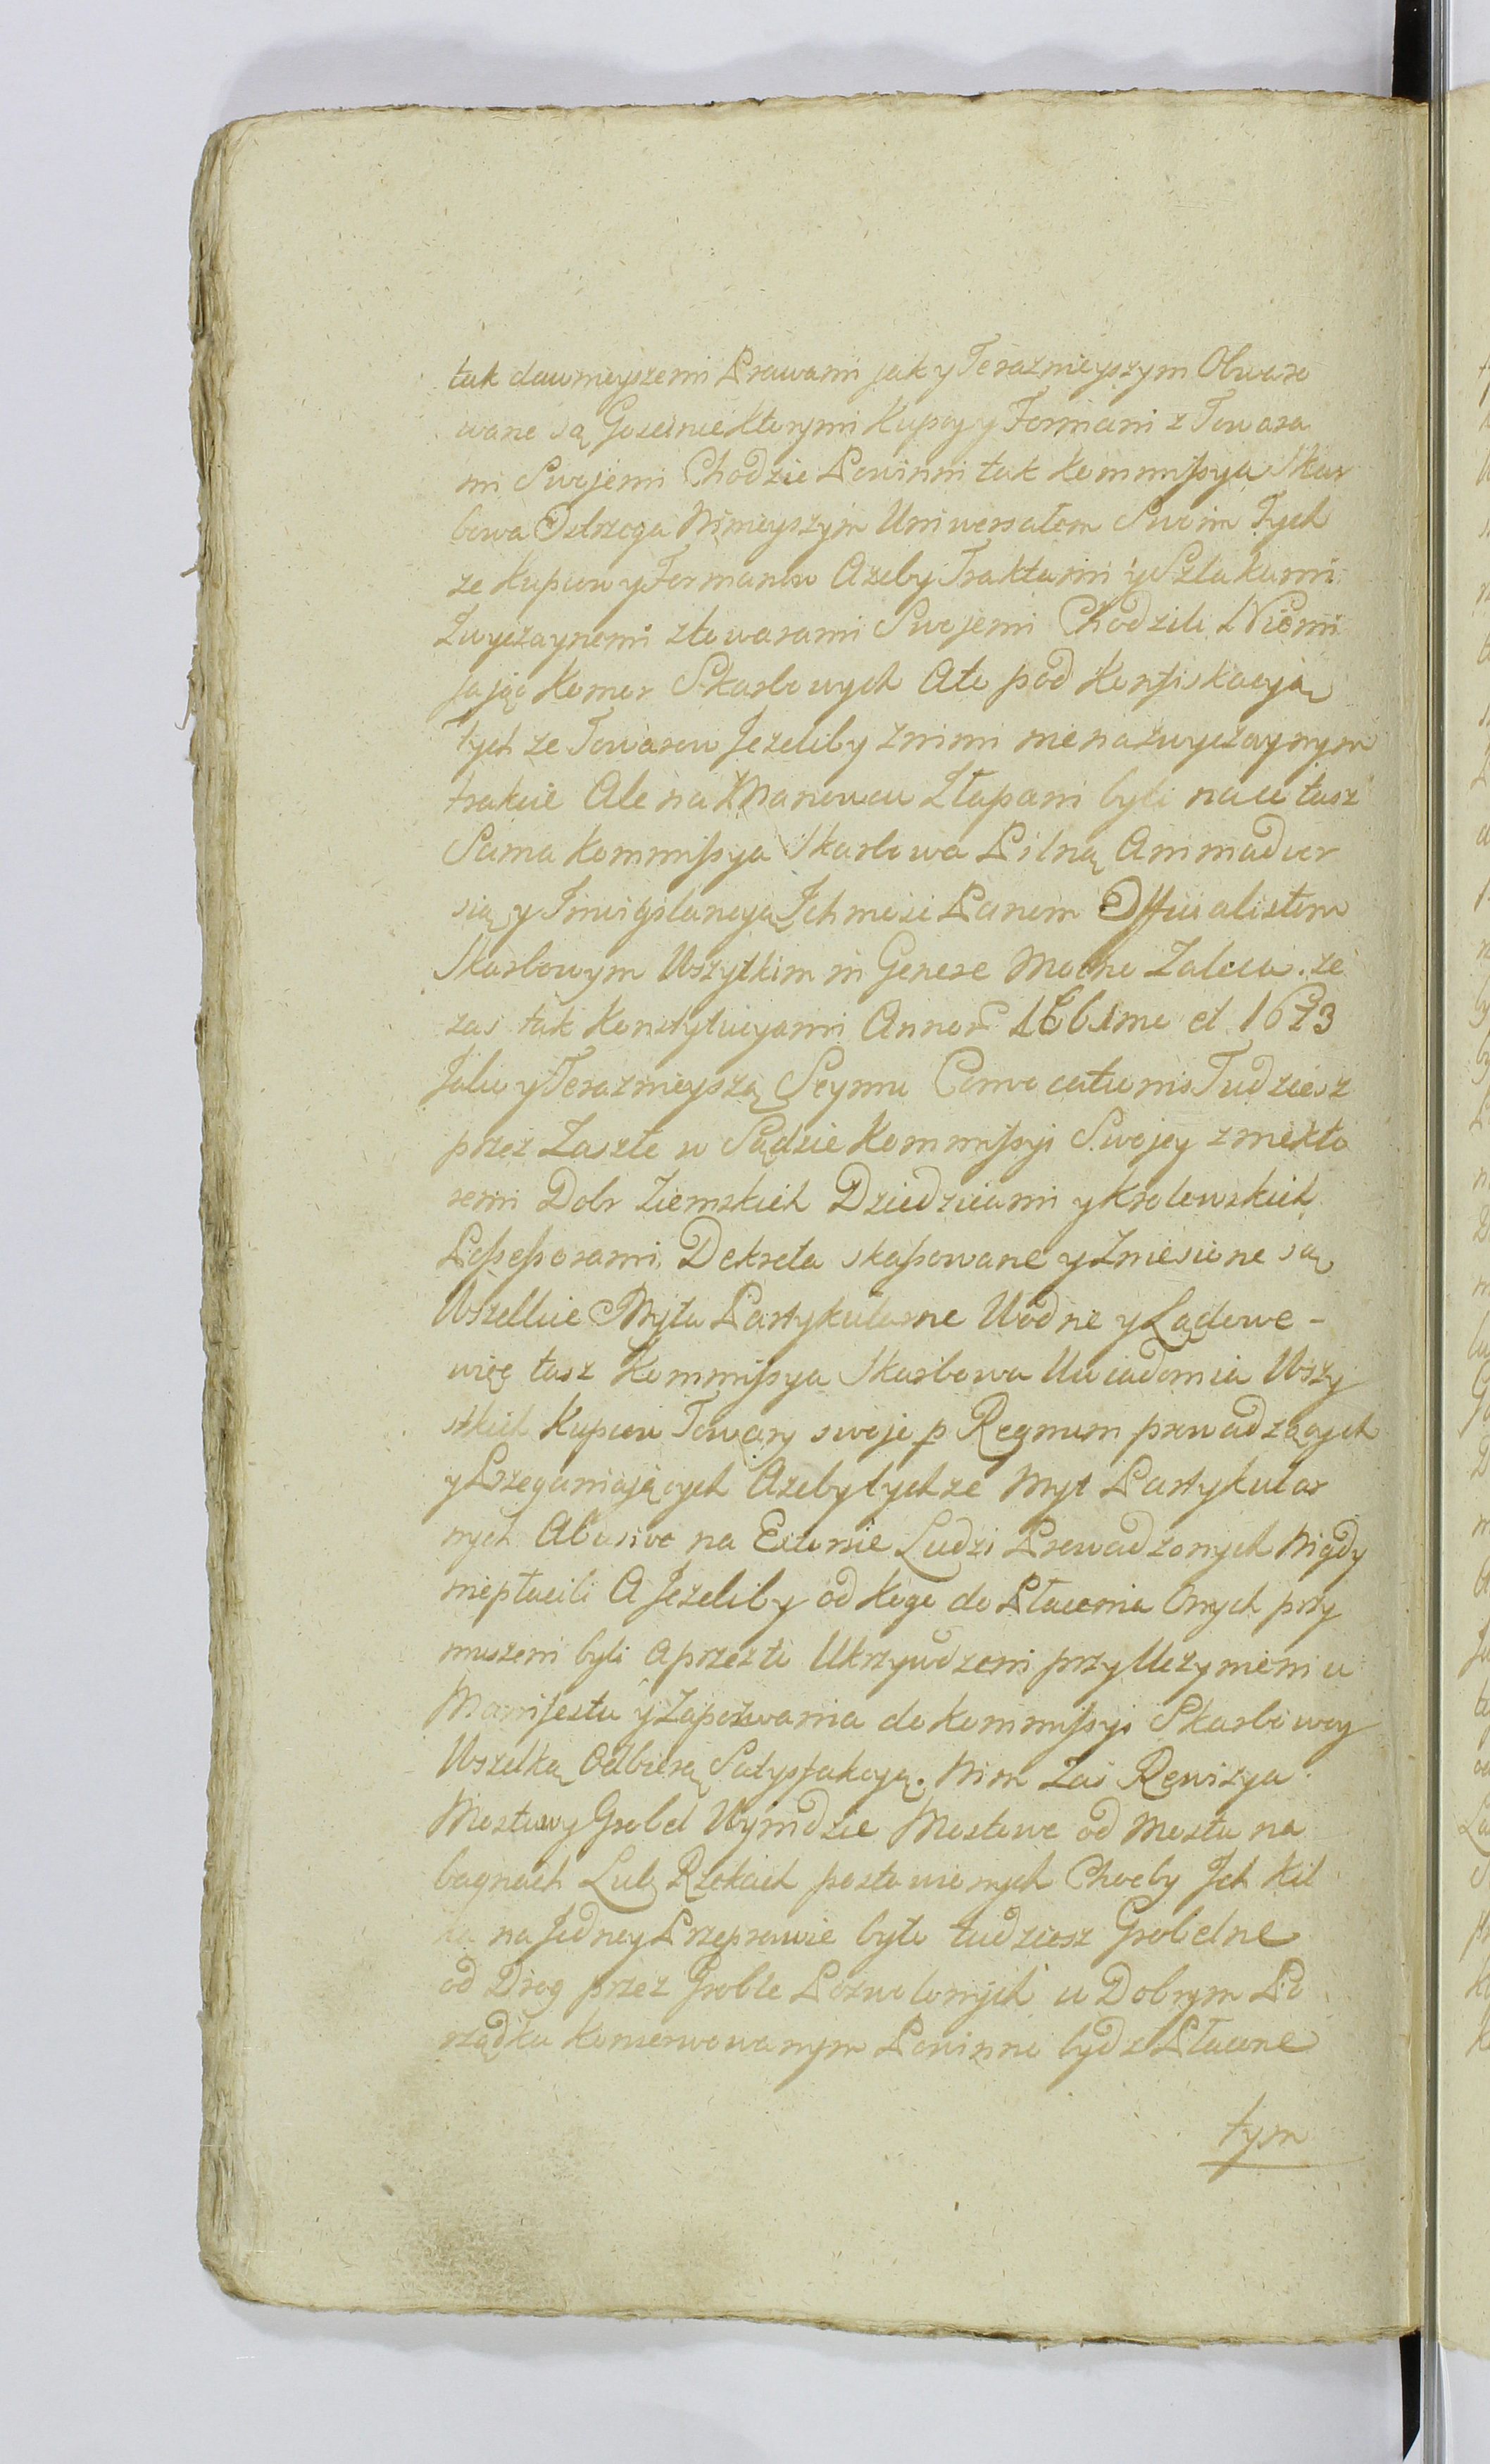 tak dawnieyszemi Prawami jak y Teraznieyszym Obwaro
wane są Goscince ktorymi Kupcy y Formani z Towara
mi Swojemi Chodzic Powinni tak Kommissya Skar
bowa Ostrzega Ninieyszym Uniwersałem Swoim Tych
ze Kupcow y Formanow Azeby Traktami y Szlakami
Zwyczaynemi z towarami Swojemi Chodzili Niomi
jając Komor Skarbowych A to pod Konfiskacyją
tych ze Towarow Jezeliby z nimi nie na zwyczaynym
trakcie Ale na Manowcu Złapani byli na co tasz
Sama Kommissya Skarbowa Pilną Animadwer
sią y Inwigilancyą Ichmosci Panom Officialistom
Skarbowym Wszytkim in Genere Mocno Zaleca. ze
zas tak Konstytucyami Annor 1661mo et 1673
Jako y Teraznieyszą Seymu Convocationis Tudziesz
przez Zaszłe w Sądzie Kommissyi Swojey z niekto
remi Dobr Ziemskich Dziedzicami y Krolewskich
Possessorami Dekreta skassowane y Zniesione są
Wszelkie Myta Partykularne Wodne y Lądowe -
więc tasz Kommissya Skarbowa Uwiadomia Wszy
stkich Kupcow Towary swoje p Regnum prowadzących
y Przeganiających Azeby tychze Myt Partykular
nych Abusive na Extorsie Ludzi Prowadzonych Nigdy
niepłacili A Jezeliby od kogo do Płacenia Onych przy
muszeni byli a przez to Ukrzywdzeni przy Uczynieniu
Manifestu y Zapozwania do Kommissyi Skarbowey
Wszelką Odbiorą Satysfakcyą. Nim Zas Rewizya
Mostow y Grobel Wynidzie Mostowe od Mostu na
bagnach Lub Rzekach postawionych Choćby Ich Kil
ka na Jedney Przeprawie było tudziesz Grobelne
od Drog przez Groble Pozwolonych w Dobrym Po
rządku Konserwowanym Powinno bydz Płacone
tym